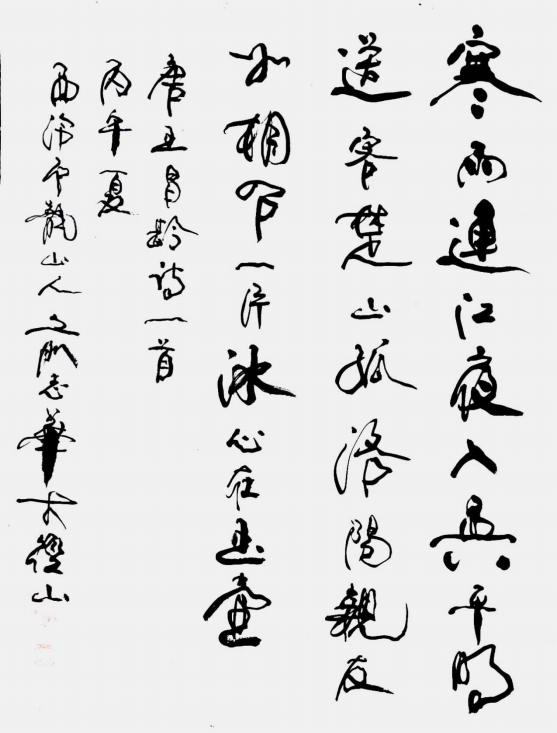 寒雨連江夜入吳平明
送客楚山孤洛陽親友
如相問一片冰心在玉壺
唐王昌齡詩一首
丙午夏
西泠龍山人志華山